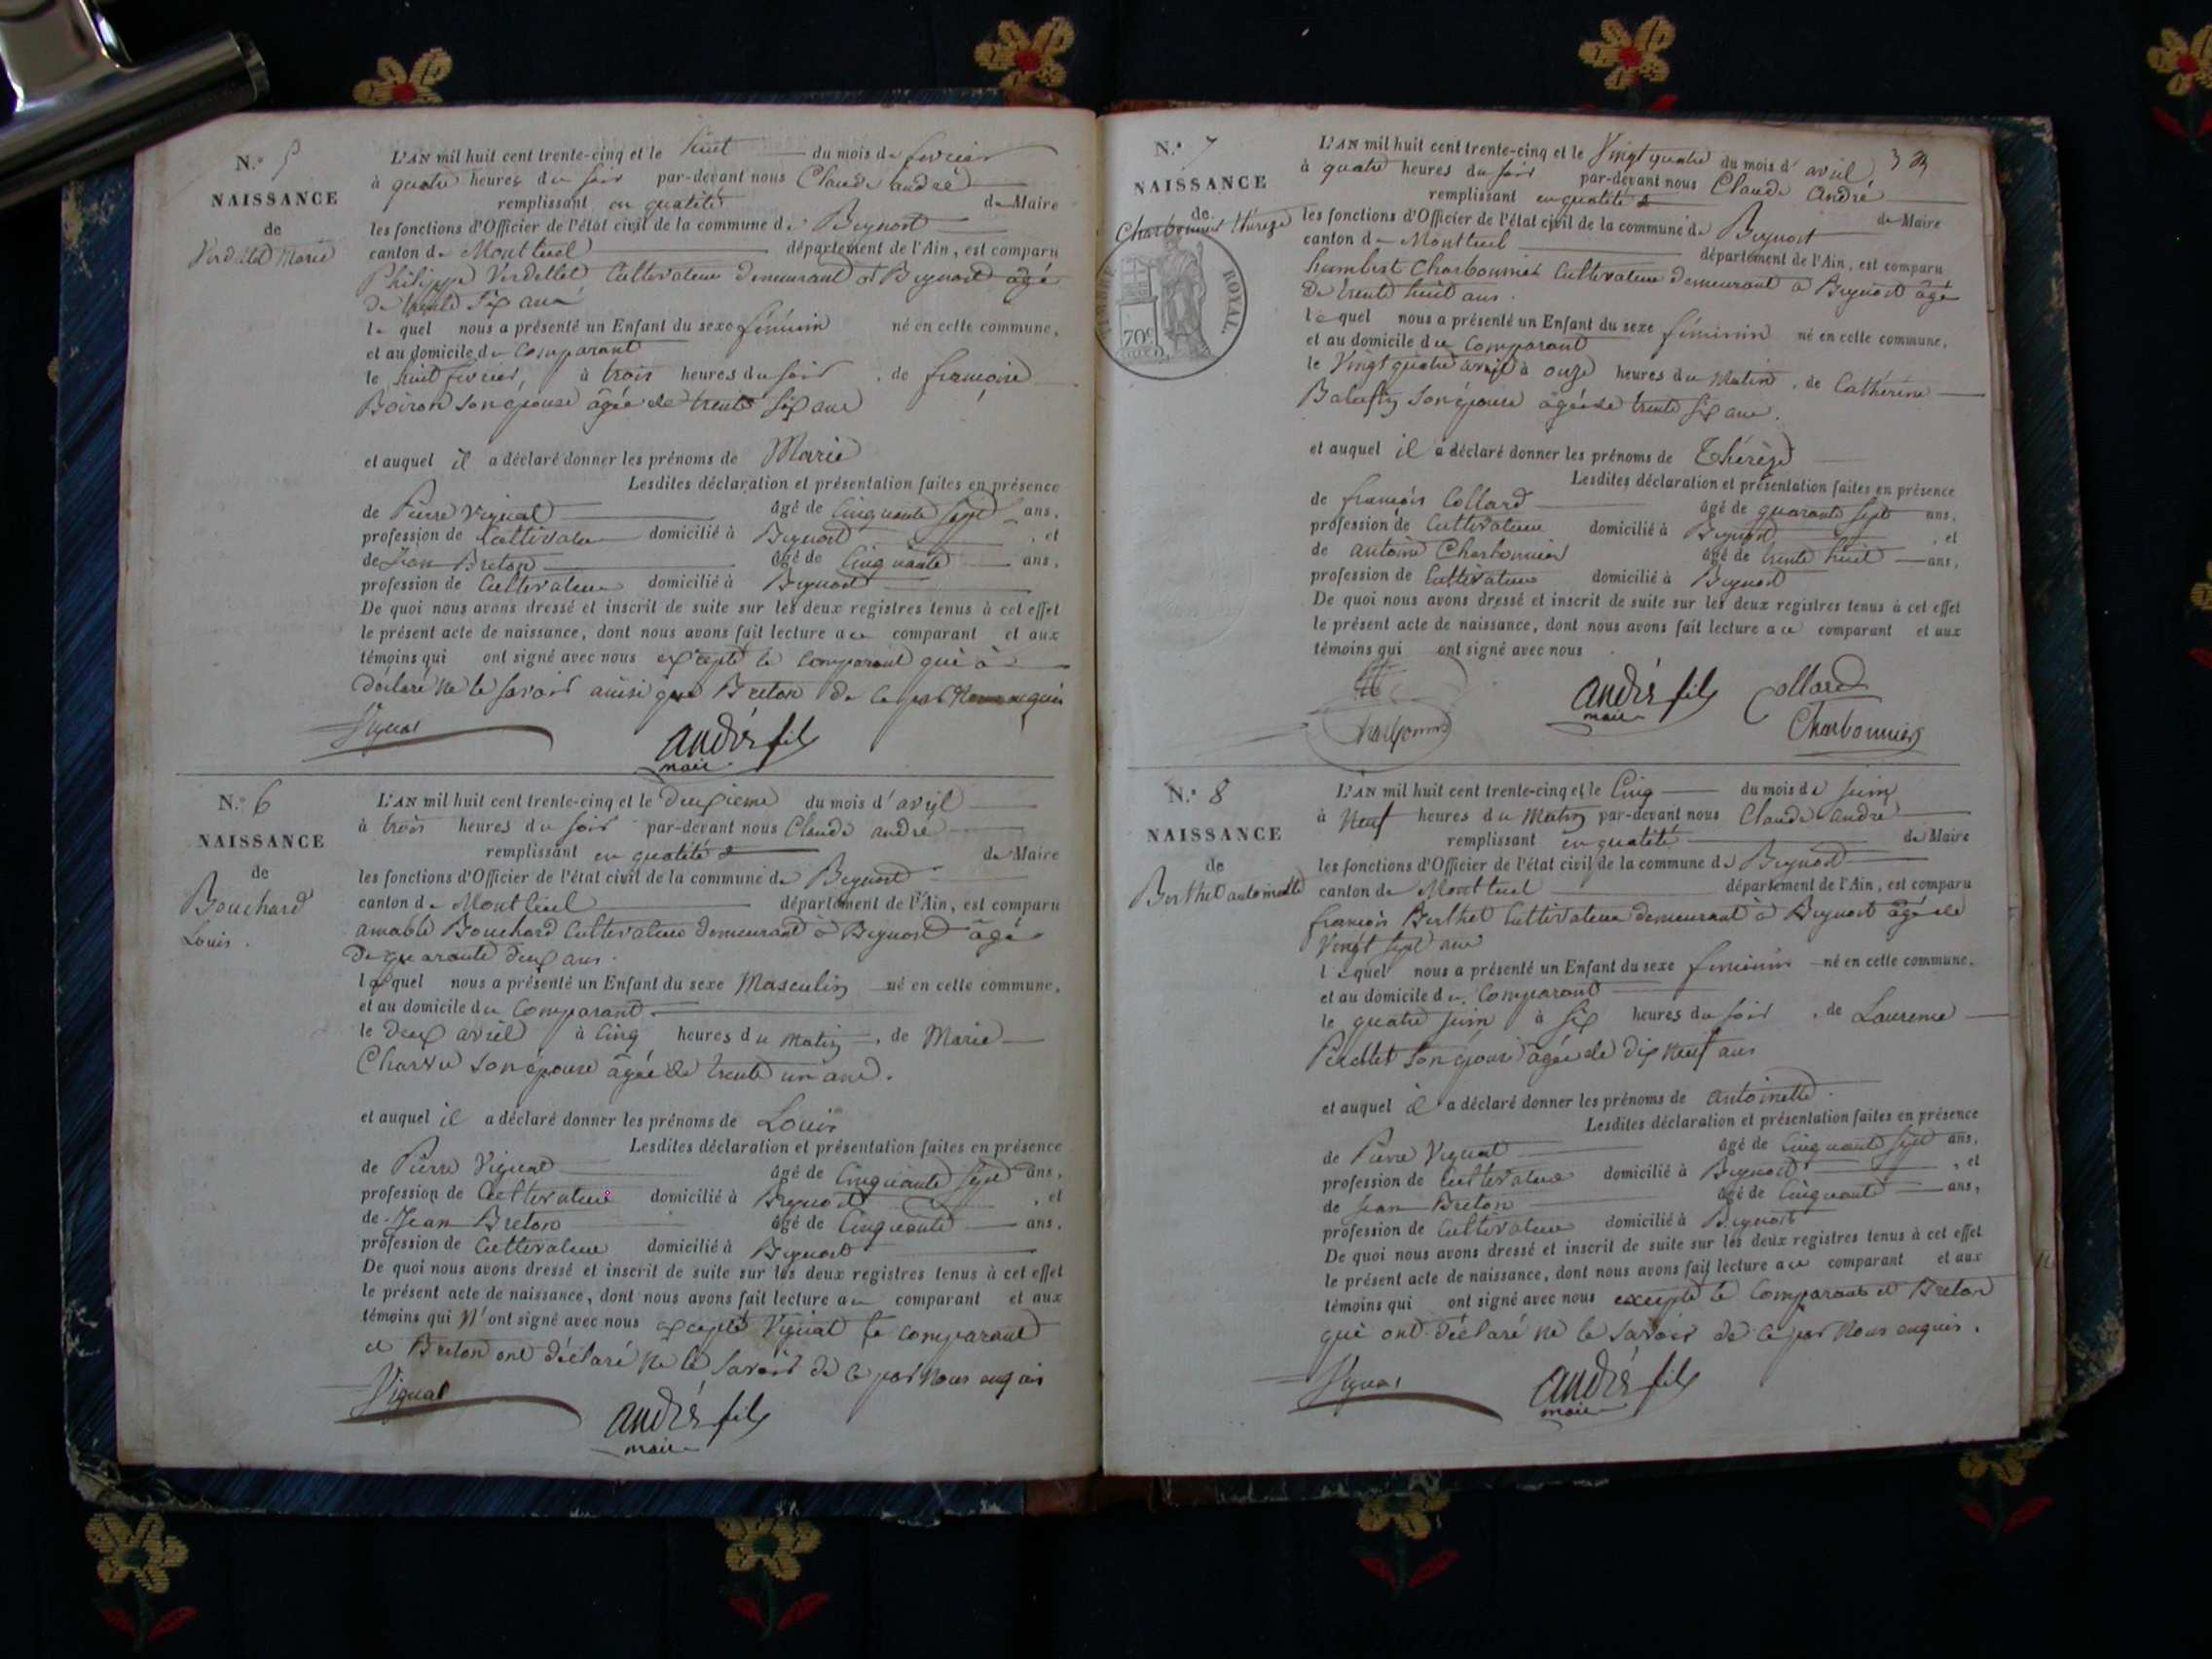 N.° 5
NAISSANCE
de
Verdellet Marie
L'AN mil huit cent trente-cinq et le huit du mois de fevrier
à quatre heures du soir par-devant nous Claude andré
remplissant en qualité de Maire
les fonctions d'Officier de l'état civil de la commune de Beynost
canton de Montluel département de l'Ain, est comparu
Philippe Verdellet Cultivateur demeurant à Beynost âgé
de trente six ans
le quel nous a présenté un Enfant du sexe féminin né en cette commune,
et au domicile du Comparant
le huit fevrier, à trois heures du soir, de françoise
Boiron son épouse âgée de trente six ans
et auquel il a déclaré donner les prénoms de Marie
Lesdites déclaration et présentation faites en présence
de Pierre Vignat âgé de Cinquante sept ans,
profession de Cultivateur domicilié à Beynost, et
de Jean Breton âgé de Cinquante ans,
profession de Cultivateur domicilié à Beynost
De quoi nous avons dressé et inscrit de suite sur les deux registres tenus à cet effet
le présent acte de naissance, dont nous avons fait lecture au comparant et aux
témoins qui ont signé avec nous excepté le Comparant qui à
déclaré ne le savoir ainsi que Breton de ce par Nous enquis
Vignat
andré fils
maire
N.° 6
NAISSANCE
de
Bouchard
Louis.
L'AN mil huit cent trente-cinq et le deuxieme du mois d'avril
à trois heures du soir par-devant nous Claude andré
remplissant en qualité de Maire
les fonctions d'Officier de l'état civil de la commune de Beynost
canton de Montluel département de l'Ain, est comparu
amable Bouchard Cultivateur demeurant à Beynost âgé
de quarante deux ans.
le quel nous a présenté un Enfant du sexe Masculin né en cette commune,
et au domicile du Comparant.
le deux avril à Cinq heures du matin, de Marie
Charvu son épouse âgée de trente un ans.
et auquel il a déclaré donner les prénoms de Louis
Lesdites déclaration et présentation faites en présence
de Pierre Vignat âgé de Cinquante sept ans,
profession de Cultivateur domicilié à Beynost, et
de Jean Breton âgé de Cinquante ans,
profession de Cultivateur domicilié à Beynost
De quoi nous avons dressé et inscrit de suite sur les deux registres tenus à cet effet
le présent acte de naissance, dont nous avons fait lecture au comparant et aux
témoins qui N'ont signé avec nous excepté Vignat le comparant
et Breton ont déclaré ne le savoir de ce par Nous enquis
Vignat
andré fils
maire
3
N.° 7
NAISSANCE
de
Charbonnier thérèze
TIMBRE ROYAL.
70c
L'AN mil huit cent trente-cinq et le Vingt quatre du mois d'avril
à quatre heures du soir par-devant nous Claude André
remplissant en qualité de Maire
les fonctions d'Officier de l'état civil de la commune de Beynost
canton de Montluel département de l'Ain, est comparu
humbert Charbonnier Cultivateur demeurant à Beynost âgé
de trente huit ans.
le quel nous a présenté un Enfant du sexe féminin né en cette commune,
et au domicile du Comparant
le Vingt quatre avril à onze heures du Matin, de Cathérine
son épouse âgée de trente six ans.
et auquel il a déclaré donner les prénoms de Thérèze
Lesdites déclaration et présentation faites en présence
de françois Collard âgé de quarante sept ans,
profession de Cultivateur domicilié à Beynost, et
de antoine Charbonnier âgé de trente huit ans,
profession de Cultivateur domicilié à Beynost
De quoi nous avons dressé et inscrit de suite sur les deux registres tenus à cet effet
le présent acte de naissance, dont nous avons fait lecture a ce comparant et aux
témoins qui ont signé avec nous.
Charbonnier
andré fils
maire
Collard
Charbonnier
N.° 8
NAISSANCE
de
Berthet antoinette
L'AN mil huit cent trente-cinq et le Cinq du mois de juin
à Neuf heures du Matin par-devant nous Claude andré
remplissant en qualité de Maire
les fonctions d'Officier de l'état civil de la commune de Beynost
canton de Montluel département de l'Ain, est comparu
françois Berthet Cultivateur demeurant à Beynost âgé de
Vingt sept ans
le quel nous a présenté un Enfant du sexe feminin né en cette commune,
et au domicile du Comparant
le quatre juin à six heures du soir, de Laurence
Perchet son épouse âgée de dix neuf ans
et auquel il a déclaré donner les prénoms de antoinette.
Lesdites déclaration et présentation faites en présence
de Pierre Vignat âgé de Cinquante sept ans,
profession de Cultivateur domicilié à Beynost, et
de Jean Breton âgé de Cinquante ans,
profession de Cultivateur domicilié à Beynost
De quoi nous avons dressé et inscrit de suite sur les deux registres tenus à cet effet
le présent acte de naissance, dont nous avons fait lecture a ce comparant et aux
témoins qui ont signé avec nous excepté le Comparant et Breton
qui ont déclaré ne le savoir de ce par Nous enquis.
Vignat
andré fils
maire